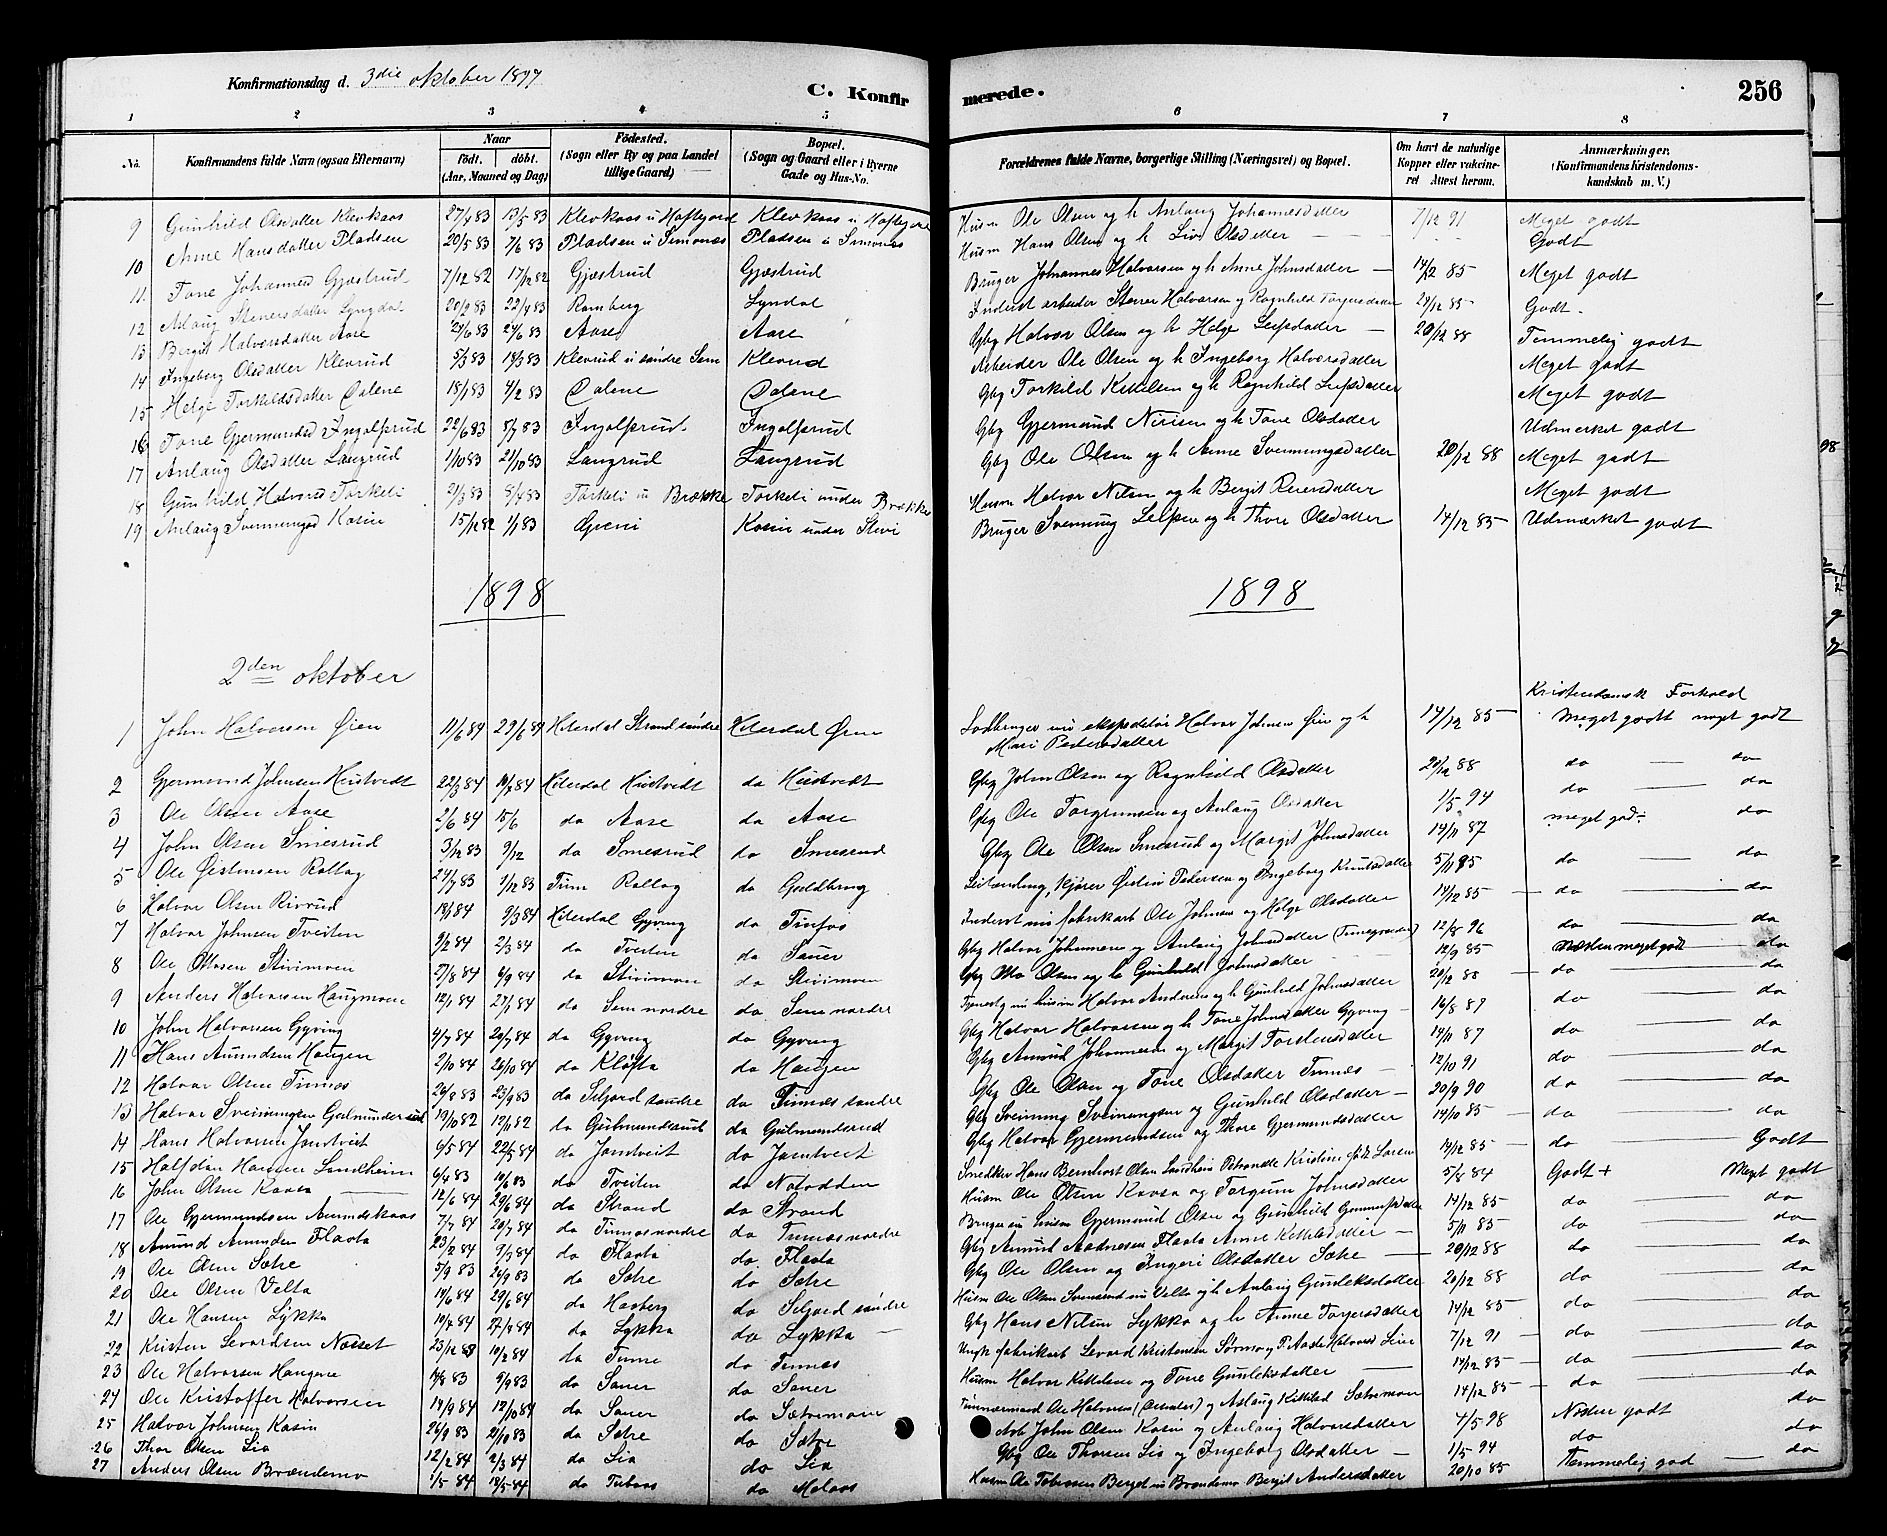 Konfirmationsdag d. 3die oktober 1897
C. Konfirmerede.
256
1 2 3 4 5 6 7 8
No. Konfirmandens fulde Navn (ogsaa Efternavn) Naar födt. döbt. (Aar, Maaned og Dag) Födested. (Sogn eller By og paa Landet tillige Gaard) Bopæl. (Sogn og Gaard eller i Byerne Gade og Hus-No. Forældrenes fulde Navne, borgerlige Stilling (Næringsvei) og Bopæl. Om havt de naturlige Kopper eller vakcineret Attest herom. Anmærkninger. (Konfirmandens Kristendomskundskab m. V.)
9 Gunhild Olsdatter Klevkaas 27/4 83 13/5 83 Klevkaas u Haftegord Klevkaas u Husm Ole Olsen og h Anlaug Johannesdatter 7/12 91 Meget godt
10 Anne Hansdatter Pladsen 20/5 83 7/6 83 Pladsen u Simonæs Pladsen u Simonæs Husm Hans Olsen og h Liv Olsdatter Godt
11. Tone Johannesd Gjæstrud 7/12 82 17/12 82 Gjæstrud Gjæstrud Bruger Johannes Halvorsen og h Anne Johnsdatter 14/12 85 Meget godt
12 Aslaug Stenersdatter Lyngdal 20/2 83 22/4 83 Ramberg Lyndal Inderst arbeider Stener Halvorsen og Ragnhild Torgersdatter 29/12 85 Godt.
13 Bergit Halvorsdatter Aase 24/6 83 Aase Aase Gbg Halvor Olsen og h Helge Leifsdatter 20/12 88 Temmelig godt
14 Ingeborg Olsdatter Klevrud 5/3 83 18/3 83 Klevrud u søndre Sem Klevrud Arbeider Ole Olsen og h Ingeborg Halvorsdatter Meget godt
15 Helge Torkildsdatter Dalene 18/1 83 4/2 83 Dalene Dalene Gbg Torkild Kittilsen og h Ragnhild Leifsdatter Meget godt
16 Tone Gjermundsd Ingolfsrud 22/6 83 8/7 83 Ingolfsrud Ingolfsrud Gbg Gjermund Nirisen og h Tone Olsdatter Udmerket godt
17 Anlaug Olsdatter Langrud 1/10 83 21/10 83 Langrud Langrud Gbg Ole Olsen og h Anne Svenningsdatter 20/12 88 Meget godt
18 Gunhild Halvorsd Torkeli 21/3 83 8/4 83 Torkeli u Brække Torkeli under Brække Husm Halvor Nilsen og h Bergit Reiersdatter Meget godt
19 Anlaug Svenningsd Kasin 15/12 82 1/1 83 Greni Kasin under Bruger Svenning Leifsen og h Thore Olsdatter 14/12 85 Udmærket godt
1898 1898
2den oktober
Kristendomsk Forhold
1 John Halvorsen Øien 11/6 84 29/6 84 Hiterdal Strand søndre Hiterdal Ørne ekspeditør Halvor Johnsen Øien og h 14/12 85 Meget godt meget godt
Mari Pedersdatter
2 Gjermund Johnsen Hustvedt 22/3 84 Hiterdal Hustvedt do Hustvedt Gbg John Olsen og Ragnhild Olsdatter 20/12 88 do do
3 Ole Olsen Aase 2/6 84 15/6 do Aase do Aase Gbg Ole Torgrimsen og Anlaug Olsdatter 1/5 94 do do
4 John Olsen Smesrud 3/12 83 9/12 do Smesrud do Smesrud Gbg Ole Olsen Smesrud og Margit Johnsdatter 14/11 87 meget god do
5 Ole Øistensen Rollag 24/7 83 1/12 83 Tinn Rollag do Guldbrug Øistein Pedersen og Ingeborg Knutsdatter 5/11 85 do do
6 Halvor Olsen Rivrud 18/1 84 9/3 84 Hiterdal Gyving do Tinfos Inderst Ole Johnsen og Helge Olsdatter 14/12 85 do do
7 Halvor Johnsen Tveiten 9/2 84 2/3 84 do Tveiten do Sauer Gbg Halvor Johannesen og Anlaug Johnsdatter 12/8 96 do do
8 Ole Ottosen Stivimoen 27/8 84 6/9 84 do Stivimoen do Stivimoen Gbg Otto Olsen og h Gunhild Johnsdatter 12/9 85 næsten meget godt do
9 Anders Halvorsen Haugmoen 12/1 84 27/1 84 do Sem nordre do Sem nordre Halvor Andersen og h Gunhild Johnsdatter 20/12 88 do do
10 John Halvorsen Gyving 4/7 84 20/7 84 do Gyving do Gyving Gbg Halvor Halvorsen og h Tone Johnsdatter Gyving 16/8 87 do do
11 Hans Amundsen Haugen 2/10 84 26/10 84 do Kløfta do Haugen Gbg Amund Johannesen og Margit Torstensdatter 14/11 87 do do
12 Halvor Olsen Tinnæs 24/8 83 23/9 83 do Seljord søndre do Tinnæs søndre Gbg Ole Olsen og Tone Olsdatter Tinnæs 12/10 91 do do
13 Halvor Sveinungsen Gulmundersrud 19/10 82 12/11 82 do Gulmundsrud do Gulmundsrud Gbg Sveinung Sveinungsen og Gunhild Olsdatter 20/9 90 do do
14 Hans Halvorsen Jamtveit 6/5 84 22/5 84 do Jamtveit do Jamtveit Gbg Halvor Gjermundsen og Thore Gjermundsdatter 14/10 85 do do
15 Halfdan Hansen Sandheim 6/4 83 10/6 83 do Tveiten do Notodden Snedker Hans Bernhart Olsen Sandheim Petronelle Kristine født Larsen 14/12 85 do Godt
16 John Olsen Kaasa 12/6 84 29/6 84 do Strand do Strand Husm Ole Olsen Kaasa og Torgun Johnsdatter 5/8 84 Godt + Meget godt
17 Ole Gjermundsen Amundskaas 7/7 84 20/7 84 do Tinnæs nordre do Tinnæs nordre Bruger Gjermund Olsen og Gunhild 14/12 85 do do
18 Amund Amundsen Flaata 23/2 84 9/3 84 do Flaata do. Flaata Gbg Amund Aadnesen Flaata Anne Kittilsdatter 5/11 85 do do
19 Ole Olsen Sætre 5/9 83 24/9 83 do Sætre do Sætre Gbg Ole Olsen og Ingeri Olsdatter Sætre 20/12 88 do do
20 Ole Olsen Velta 14/6 84 29/6 84 do Haaberg do Seljord søndre Husm Ole Olsen Velta og h Anlaug Gunleiksdatter 20/12 88 do do
21 Ole Hansen Lykka 10/4 84 27/4 84 do Lykka do Lykka Gbg Hans Nilsen Lykka og h Anne Torgersdatter 14/12 85 do do
22 Kristen Sevardsen Næsset 23/12 83 10/2 84 do Tinne do Tinnæs Sevard Kristensen Sørmo og Halvorsd 7/12 91 do do
23 Ole Halvorsen Haugene 4/8 83 9/9 83 do Sauer do Sauer Husm Halvor Kittilsen og Tone Gunleiksdatter 14/12 85 do do
24 Ole Kristoffer Halvorsen 14/9 84 12/10 84 do Sauer do Sætremoen Tømmermand Ole Halvorsen og Aslaug Kittilsd Sætremoen 14/12 85 do do
25 Halvor Johnsen Kasin 26/9 83 21/10 83 do Sætre do Sætre Arb John Olsen Kasin og Anlaug Halvorsdatter 4/5 98 Næsten godt do
26 Thor Olsen Lia 12/2 84 2/3 84 do Lia do Lia Gbg Ole Thorsen Lia og Ingeborg Olsdatter 1/5 94 do do
27 Anders Olsen Brændemo 1/5 84 18/5 84 do do Husm Ole Tobiassen Brændemo Bergit Andersdatter 20/10 85 Temmelig god do